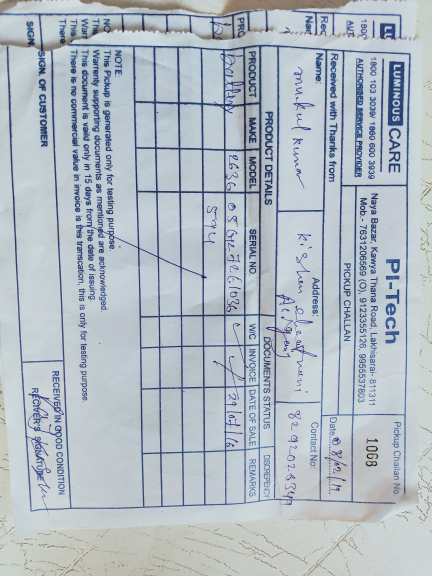 LUMINOUS CARE
1800 103 3039/ 1860 600 3939
AUTHORISED SERVICE PROVIDER
PI-Tech
Naya Bazar, Kawya Thana Road, Lakhisarai- 811311
Mob.- 7631206569 (O), 9123355126, 9955537803
PICKUP CHALLAN
Pickup Challan No
1068
Received with Thanks from
Date
Name:
mukul kumar
Address:
Contact No:
PRODUCT DETAILS
DOCUMENTS STATUS
DISCREPENCY
PRODUCT MAKE MODEL SERIAL NO. W/C INVOICE DATE OF SALE REMARKS
Battery
594
NOTE:
This Pickup is generated only for testing purpose
Warrenty supporting documents as mentioned are acknowledged
This document is valid only in 15 days from the date of issuing.
There is no commercial value in invoice is this transcation, this is only for testing purpose.
SIGN. OF CUSTOMER
RECEIVED IN GOOD CONDITION
RECIVER'S SIGNATURE